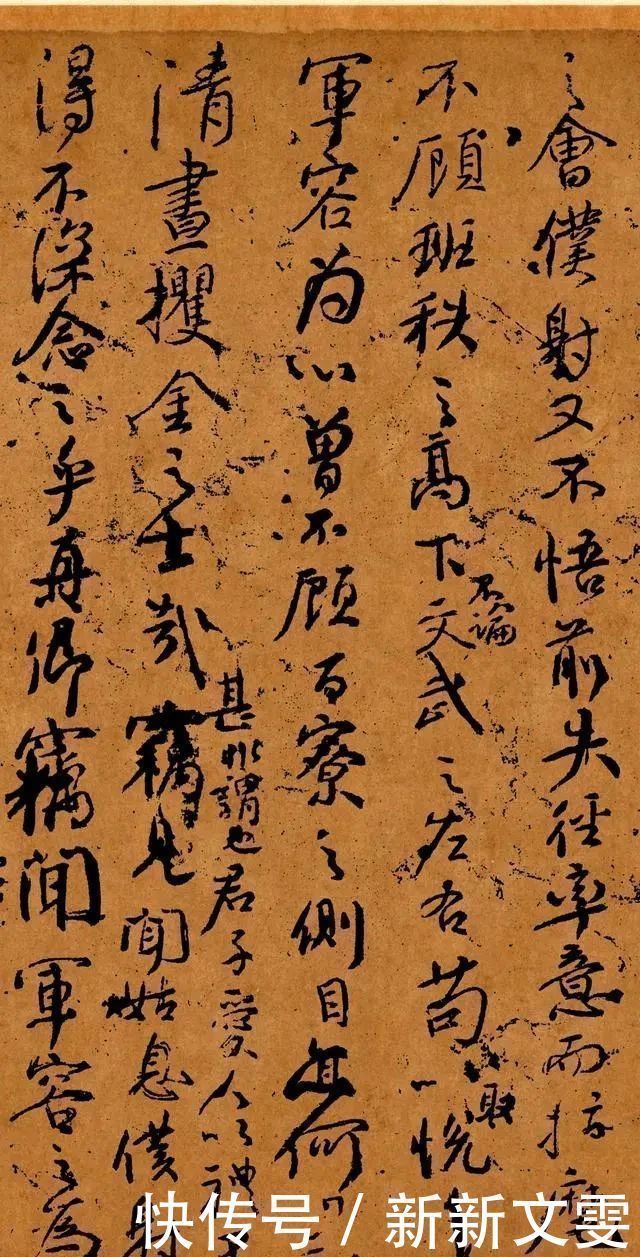 之會僕射又不悟前失徑率意而指麾
不顧班秩之高下不論文武之左右苟以取悅
軍容為心曾不顧百寮之側目亦何
清晝攫金之士哉甚非謂也君子愛人以禮
竊見聞姑息僕射
得不深念之乎真卿竊聞軍容之為
快传号 / 新新文雯